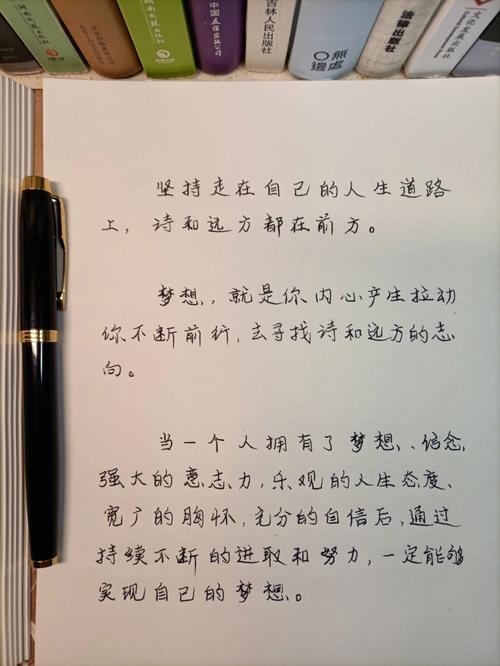 湖南文艺出版社
中国友谊出版公司
吉林人民出版社
无处
边
法律出版社
文化发展出版社
坚持走在自己的人生道路
上，诗和远方都在前方。
梦想，就是你内心产生拉动
你不断前行，去寻找诗和远方的志
向。
当一个人拥有了梦想、信念，
强大的意志力，乐观的人生态度、
宽广的胸怀，充分的自信后，通过
持续不断的进取和努力，一定能够
实现自己的梦想。